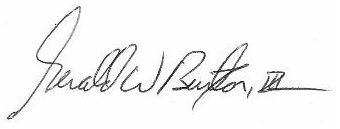 Gerald W Burton, III